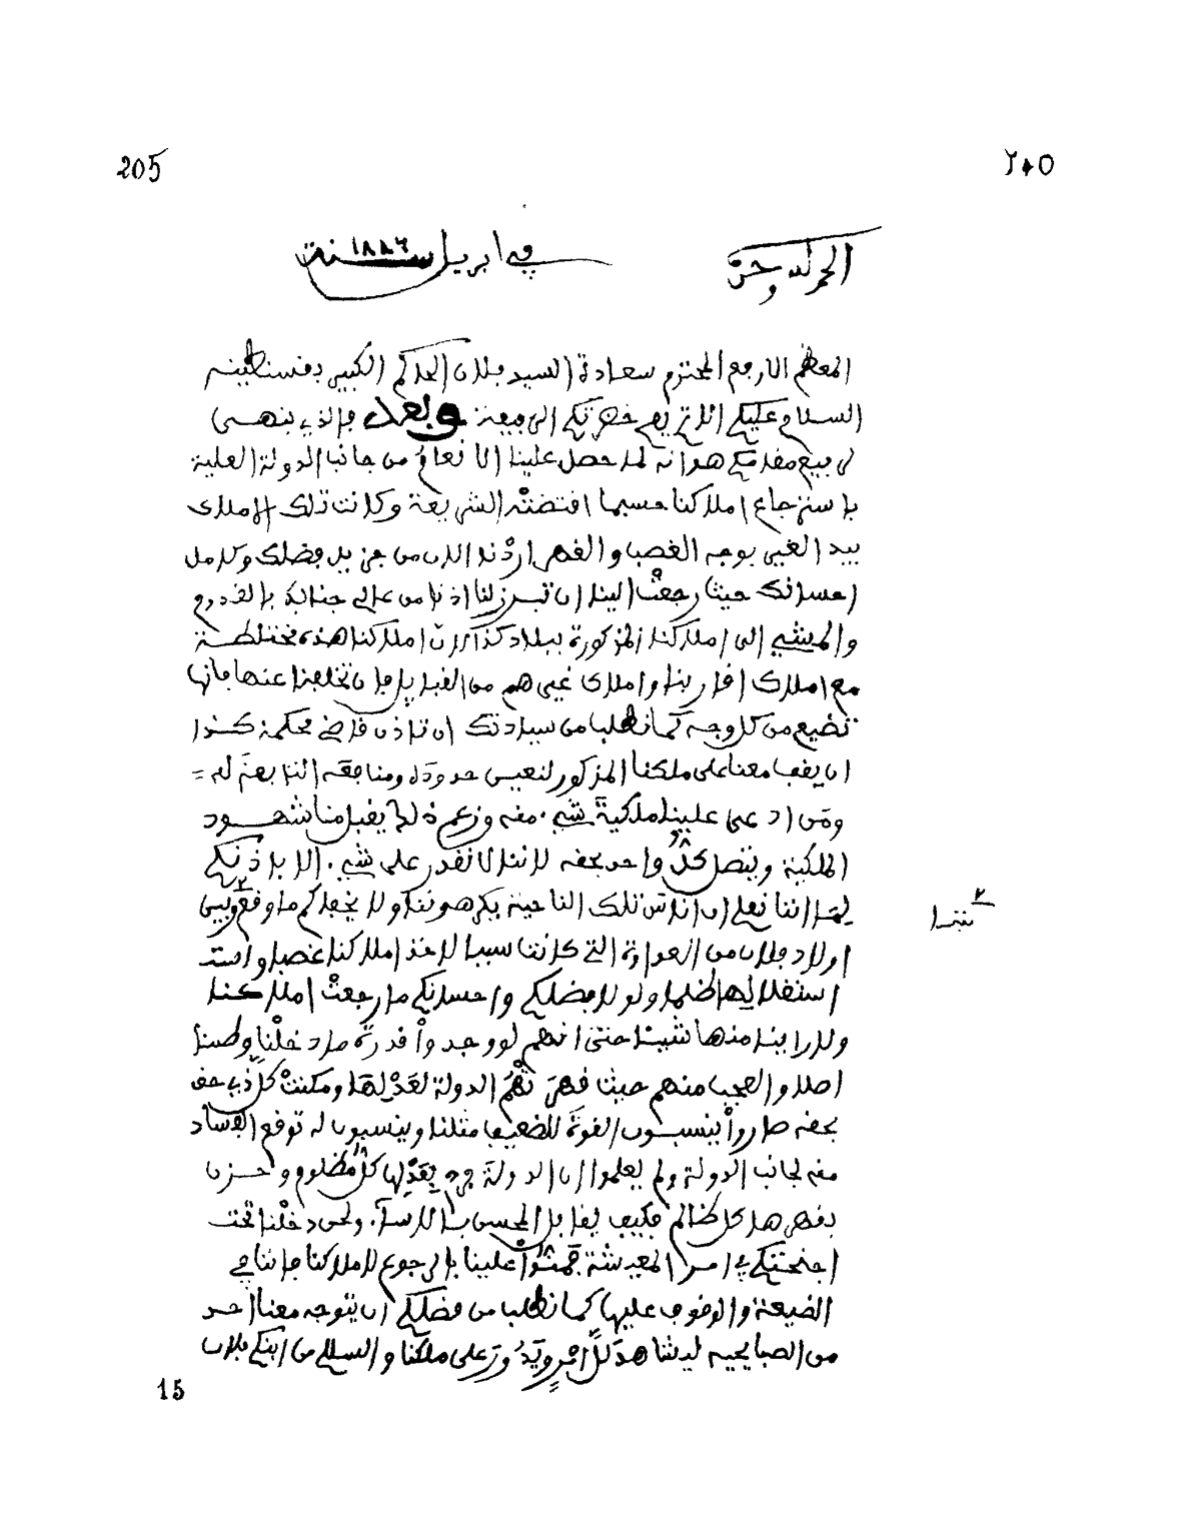 205
٢٠٥
الحمد لله وحده
في ابريل سنة ١٨٨٦
المعظم الارفع المحترم سعادة السيد فلان الحاكم الكبير بقسنطينه
السلام عليكم اللائق بحضرتكم الرفيعة وبعد فالذي ينهى
لرفيع مقامكم هو انه لما حصل علينا الانعام من جانب الدولة العلية
باسترجاع املاكنا حسبما اقتضته الشريعة وكانت تلك الاملاك
بيد الغير بوجه الغصب والقهر اردنا الان من جزيل فضلك وكامل
احسانك حيث رجعت الينا ان تبرز لنا اذنا من عالي جنابك بالقدوم
والمشي الى املاكنا المذكورة ببلاد كذا لان املاكنا هذه مختلطة
مع املاك اقاربنا واملاك غيرهم من القبايل فان تخلفنا عنها فانها
تضيع من كل وجه كما نطلب من سيادتك ان تاذن قاضي محكمة كذا
ان يقف معنا على ملكنا المذكور لتعيين حدوده ومنافعه التابعة له =
ومن ادعى علينا ملكية شيء منه وزعم لا يقبل منا شهود
الملكية ويتصل كل واحد بحقه لاننا لا نقدر على شيء الا باذنكم
لما اننا نعلم ان اناس تلك الناحية يكرهوننا ولا يخفاكم ما وقع وبين
٢ نننا
اولاد فلان من العداوة التي كانت سببا لاخذ املاكنا غصبا واست
استغلالها ظلما ولولا فضلكم واحسانكم ما رجعت املاكنا
ولا راينا منها شيئا حتى انهم لو وجدوا قدرة ما دخلنا وطننا
اصلا والعجب منهم حيث قهرتهم الدولة لعدلها ومكنت كل ذي حق
بحقه صاروا ينسبون القوة للضعيف مثلنا وينسبون له توقع الفساد
منه لجانب الدولة ولم يعلموا ان الدولة بعدلها كل مظلوم و
بقهرها كل ظالم فكيف يقابل المحسن بالاساء ونحن دخلنا تحت
اجنحتكم في امر المعيشة علينا بالرجوع لاملاكنا فاننا في
الضيعة والوقوف عليها كما نطلب من فضلكم ان يتوجه معنا احد
من الصبايحيه ليشاهد كل امر على ملكنا والسلام من ابنكم فلان
15